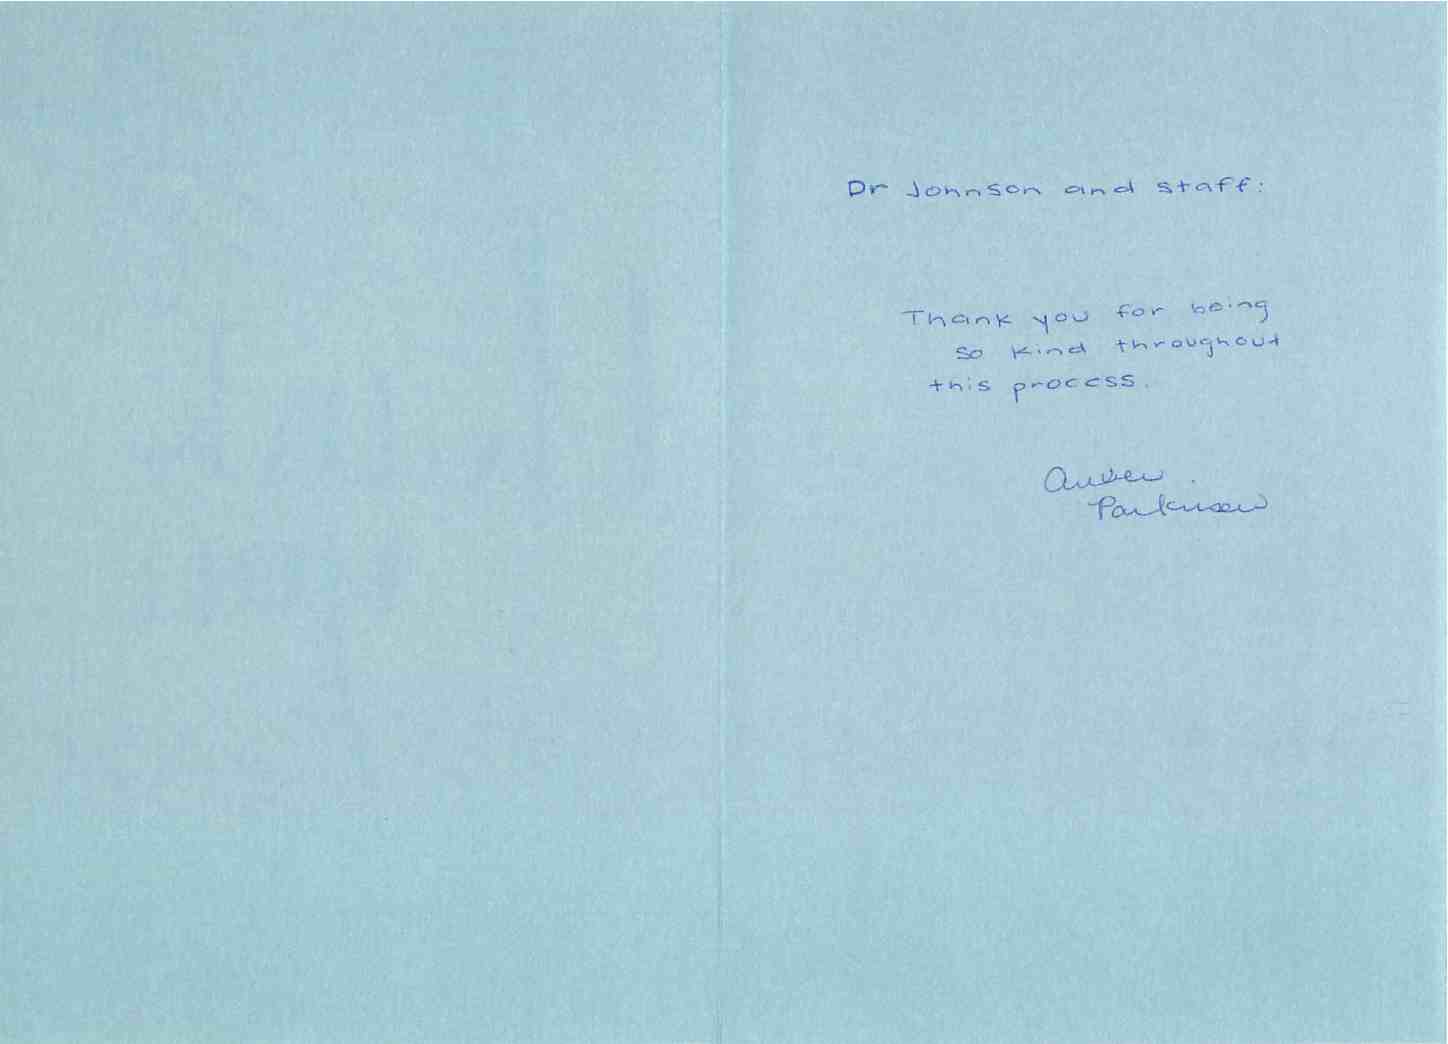 Dr Johnson and staff:
Thank you for being
so kind throughout
this process.
Parkinson